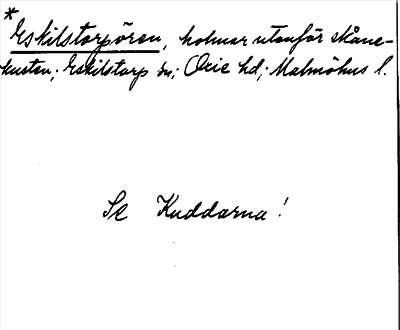 *
Eskilstorpören, holmar utanför skåne-
kusten; Eskilstorp sn; Oxie hd; Malmöhus l.
Se Kuddarna!